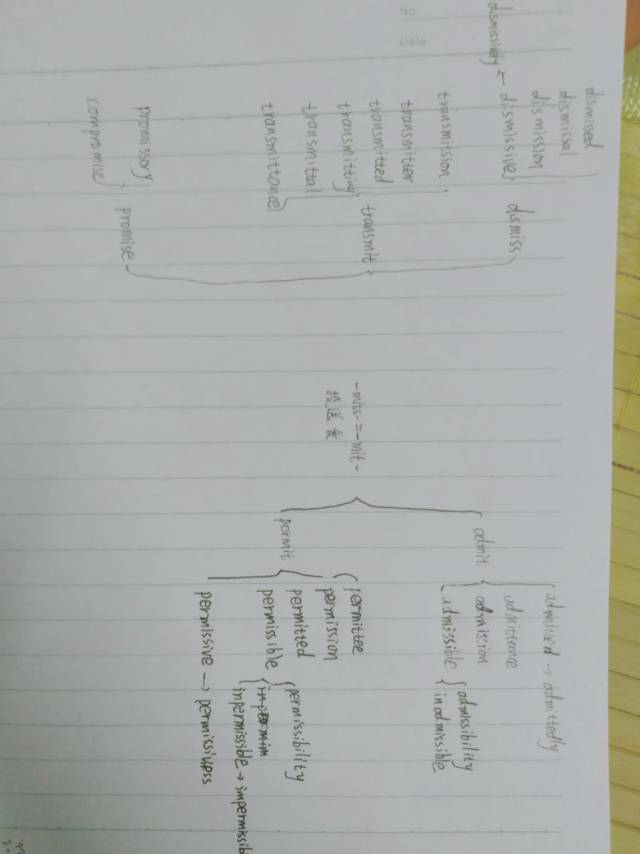 No.
Date
dismissed
dismissal
dismission
dismissively ← dismissive
dismiss
transmission
transmitter
transmitted
transmitting
transmittal
transmittancel
transmit
promissory
compromise
promise
-miss- = -mit-
投送发
admit
admitted → admittedly
admittance
admission
admissible
admissibility
inadmissible
permit
permittee
permission
permitted
permissible
permissibility
inpermissible → impermissib
permissive → permissivess